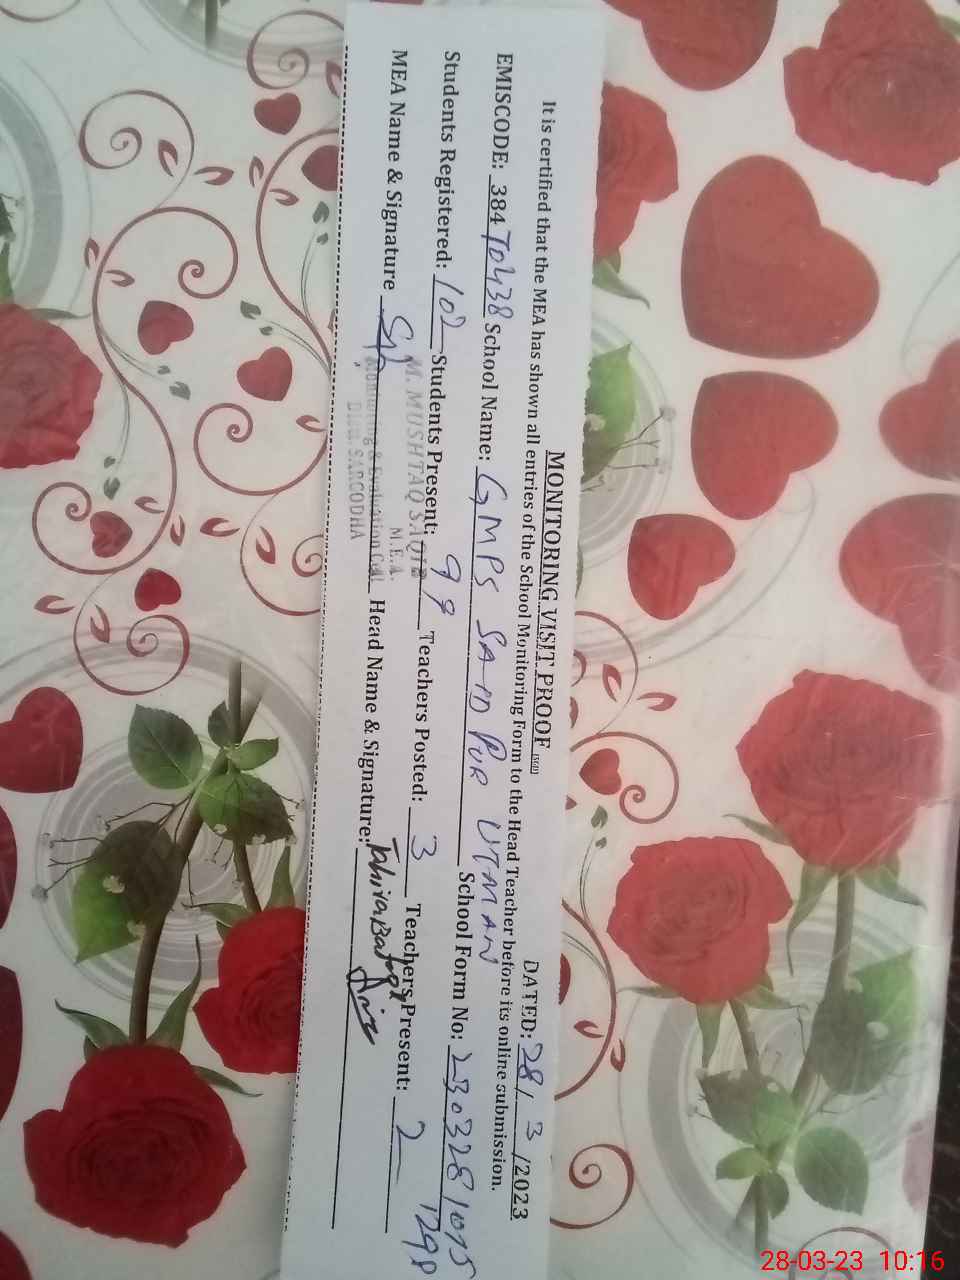 MONITORING VISIT PROOF
DATED: 28/3/2023
It is certified that the MEA has shown all entries of the School Monitoring Form to the Head Teacher before its online submission.
EMISCODE: 38470438 School Name: GMPS SAID PUR UTMAN School Form No: 2303281075
1298
Students Registered: 102 Students Present: 99 Teachers Posted: 3 Teachers Present: 2
M. MUSHTAQ SAQIB
M.E.A.
MEA Name & Signature Head Name & Signature: Tahira Batool
Monitoring & Evaluation Cell
Distt. SARGODHA
28-03-23 10:16